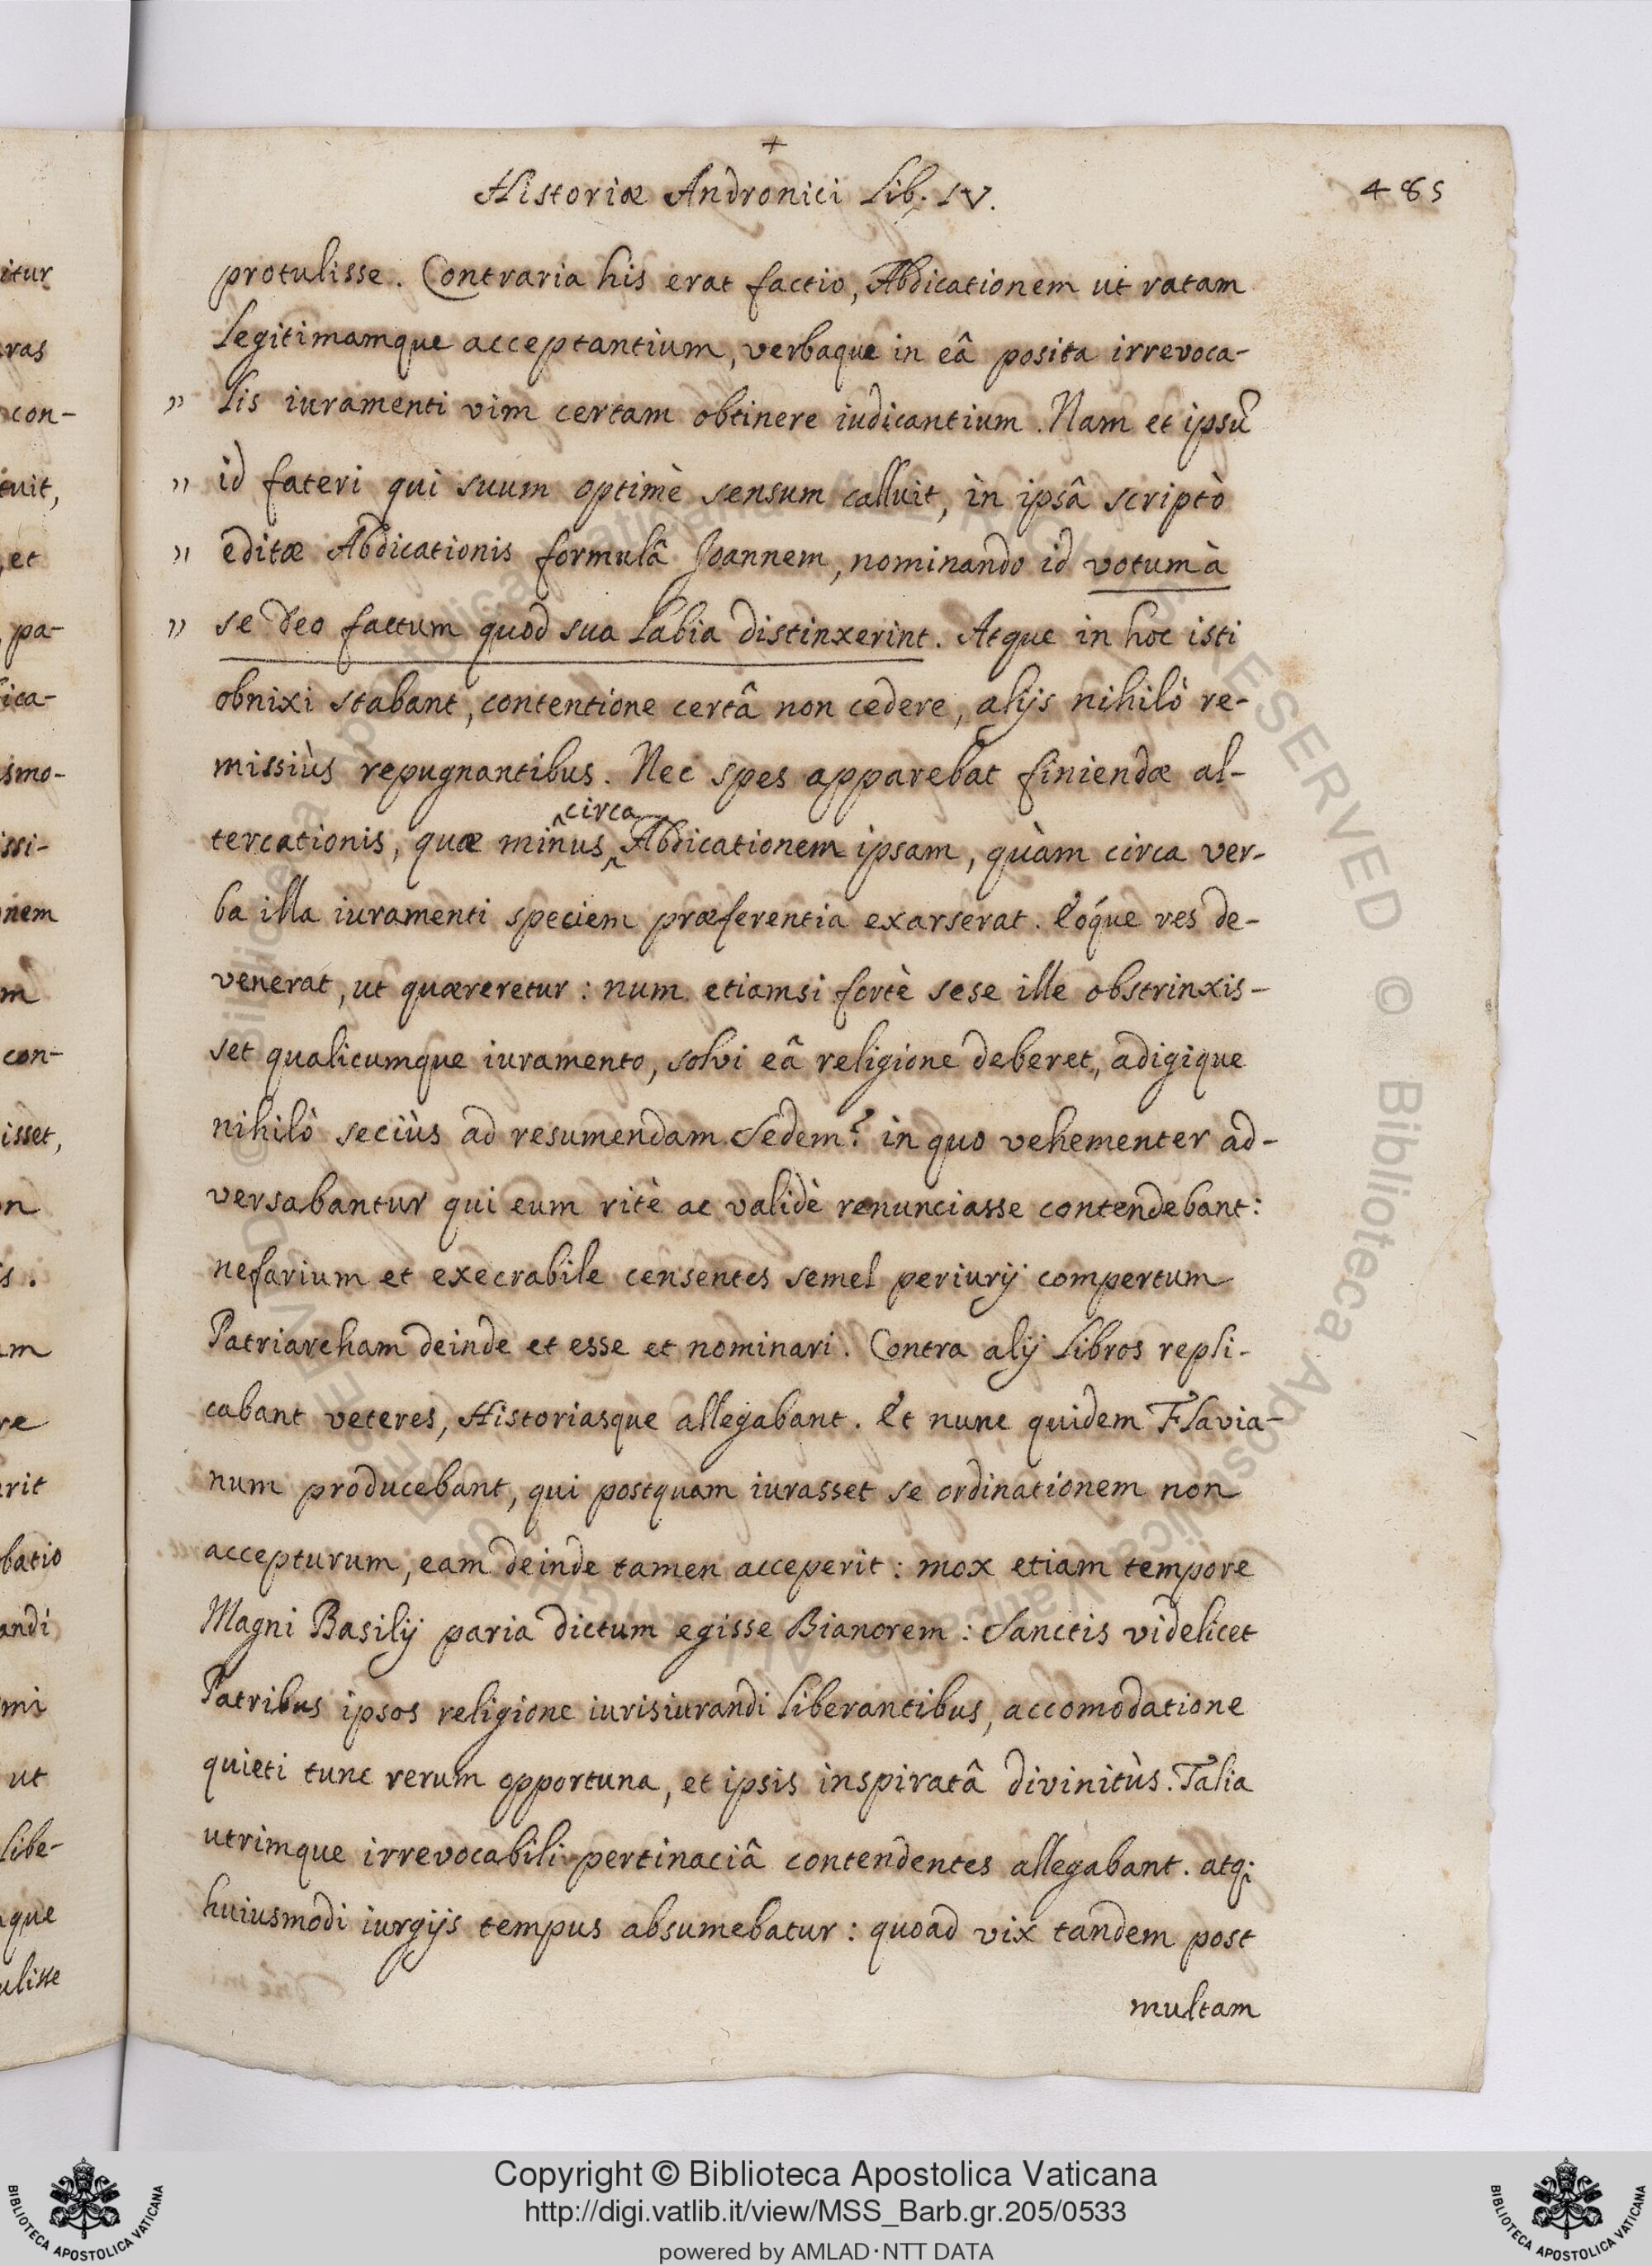 +
Historiæ Andronici Lib. IV.
485
protulisse. Contraria his erat factio, Abdicationem ut ratam
legitimamque acceptantium, verbaque in eâ posita irrevoca-
" lis iuramenti vim certam obtinere iudicantium. Nam et ipsũ
" id fateri qui suum optimè sensum calluit, in ipsâ scriptò
" editæ Abdicationis formulâ Joannem, nominando id votum à
" se deo factum quod sua labia distinxerint. Atque in hoc isti
obnixi stabant, contentione certâ non cedere, alijs nihilò re-
missiùs repugnantibus. Nec spes apparebat finiendæ al-
circa
tercationis, quæ minus Abdicationem ipsam, quàm circa ver-
ba illa iuramenti speciem præferentia exarserat. Eóque res de-
venerat, ut quæreretur: num etiamsi fortè sese ille obstrinxis-
set qualicumque iuramento, solvi eâ religione deberet, adigique
nihilò seciùs ad resumendam Sedem? in quo vehementer ad-
versabantur qui eum ritè ac validè renunciasse contendebant:
nefarium et execrabile censentes semel periurij compertum
Patriarcham deinde et esse et nominari. Contra alij libros repli-
cabant veteres, Historiasque allegabant. Et nunc quidem Flavia-
num producebant, qui postquam iurasset se ordinationem non
accepturum, eam deinde tamen acceperit: mox etiam tempore
Magni Basilij paria dictum egisse Bianorem: Sanctis videlicet
Patribus ipsos religione iurisiurandi liberantibus, accomodatione
quieti tunc rerum opportuna, et ipsis inspiratâ divinitùs. Talia
utrimque irrevocabili pertinaciâ contendentes allegabant. atq;
huiusmodi iurgijs tempus absumebatur: quoad vix tandem post
multam
itur
ras
con-
tuit,
et
pa-
ica-
ismo-
issi-
nem
m
con-
isset,
n
s.
am
re
rit
batio
andi
mi
ut
libe-
que
ulisse
© Biblioteca Apostolica Vaticana
RESERVED © Biblioteca Apostolica Vaticana
Copyright © Biblioteca Apostolica Vaticana
http://digi.vatlib.it/view/MSS_Barb.gr.205/0533
powered by AMLAD·NTT DATA
BIBLIOTECA APOSTOLICA VATICANA
BIBLIOTECA APOSTOLICA VATICANA